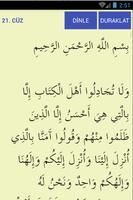 21. CÜZ DİNLE DURAKLAT
بِسْمِ اللَّهِ الرَّحْمَنِ الرَّحِيمِ
وَلَا تُجَادِلُوا أَهْلَ الْكِتَابِ إِلَّا
بِالَّتِي هِيَ أَحْسَنُ إِلَّا الَّذِينَ
ظَلَمُوا مِنْهُمْ وَقُولُوا آمَنَّا بِالَّذِي
أُنْزِلَ إِلَيْنَا وَأُنْزِلَ إِلَيْكُمْ وَإِلَهُنَا
وَإِلَهُكُمْ وَاحِدٌ وَنَحْنُ لَهُ